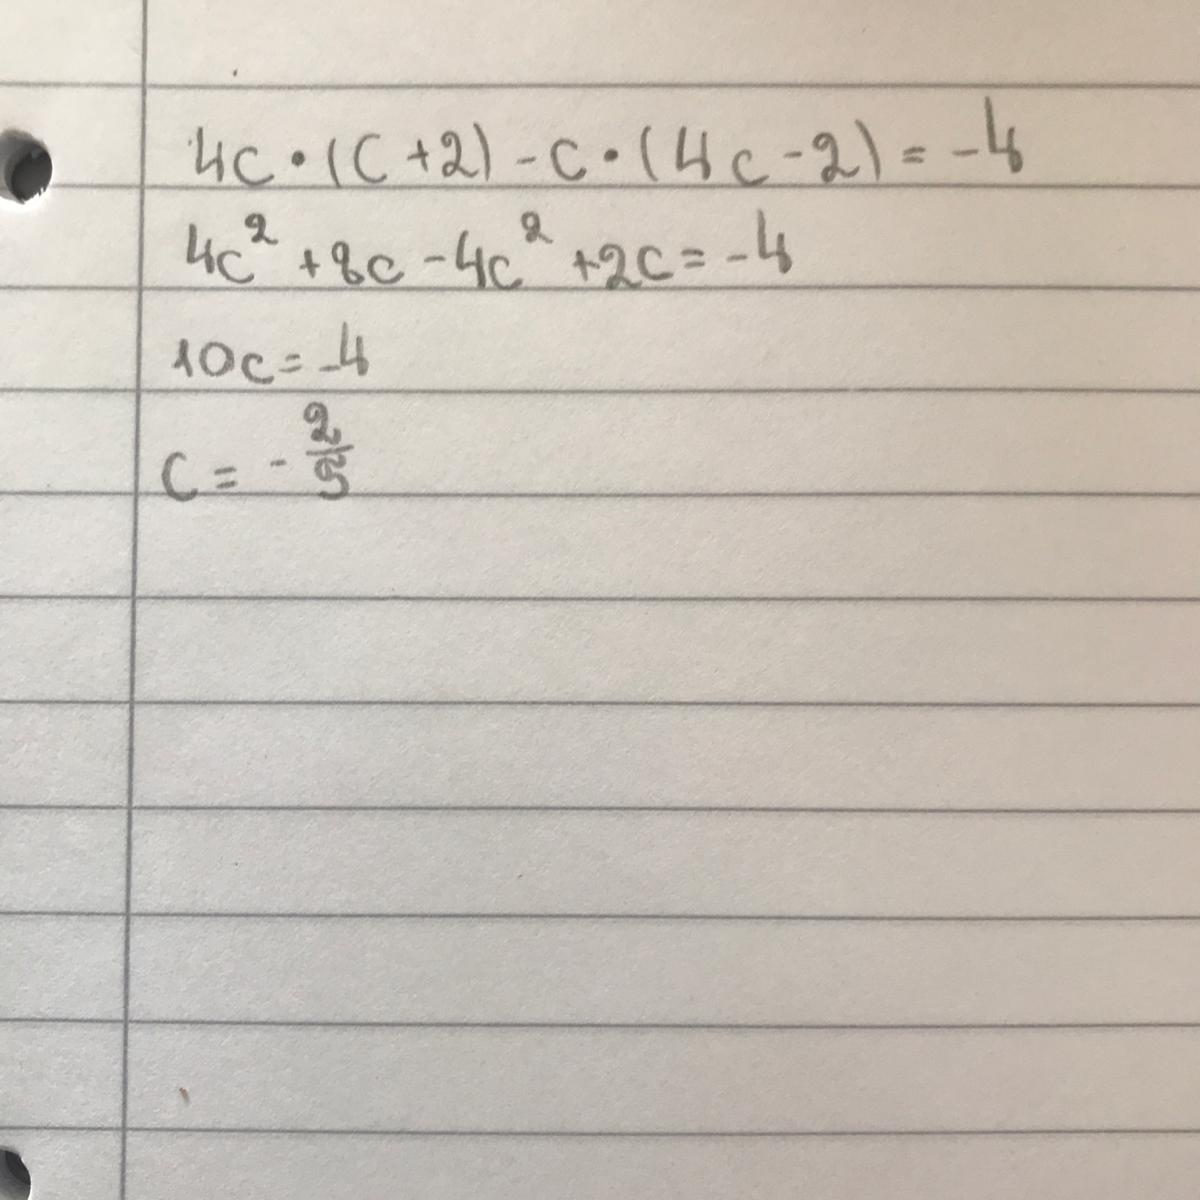 4c · (c + 2) - c · (4c - 2) = -4
4c² + 8c - 4c² + 2c = -4
10c = -4
c = - 2/5